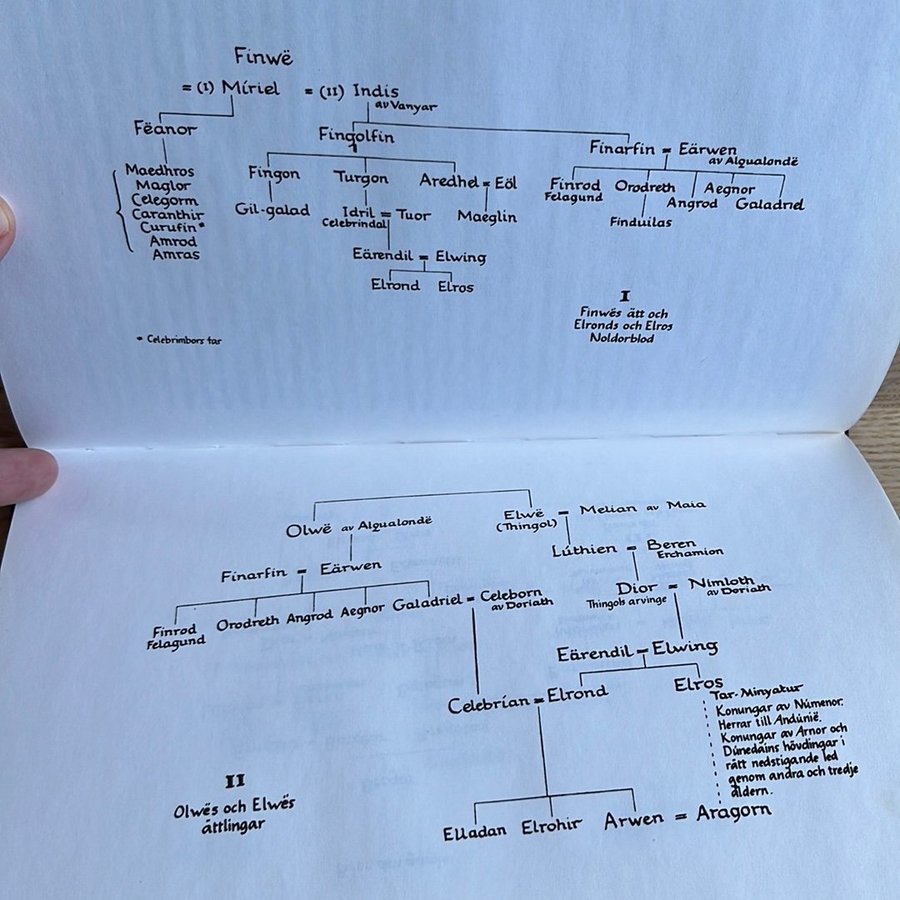 Finwë
= (I) Míriel = (II) Indis
av Vanyar
Fëanor
Fingolfin
Finarfin = Eärwen
av Alqualondë
Maedhros
Maglor
Celegorm
Caranthir
Curufin*
Amrod
Amras
Fingon Turgon Aredhel = Eöl
Gil-galad Idril = Tuor Maeglin
Celebrindal
Eärendil = Elwing
Elrond Elros
Finrod Orodreth Aegnor
Felagund Angrod Galadriel
Finduilas
I
Finwës ätt och
Elronds och Elros
Noldorblod
* Celebrimbors far
Olwë av Alqualondë
Elwë = Melian av Maia
(Thingol)
Lúthien = Beren
Erchamion
Finarfin = Eärwen
Dior = Nimloth
Thingols arvinge av Doriath
Finrod Orodreth Angrod Aegnor Galadriel = Celeborn
Felagund av Doriath
Eärendil = Elwing
Celebrían = Elrond Elros
Tar-Minyatur
Konungar av Númenor.
Herrar till Andúnië.
Konungar av Arnor och
Dúnedains hövdingar i
rätt nedstigande led
genom andra och tredje
åldern.
II
Olwës och Elwës
ättlingar
Elladan Elrohir Arwen = Aragorn